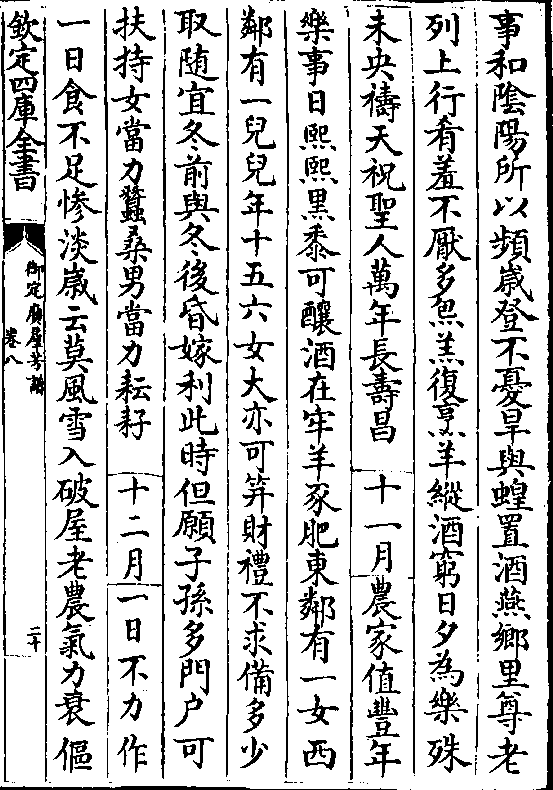 事和陰陽所以頻歲登不憂旱與蝗置酒燕鄉里尊老
列上行肴羞不厭多炰羔復烹羊縱酒窮日夕為樂殊
未央禱天祝聖人萬年長壽昌 十一月農家值豐年
樂事日熙熙黒黍可釀酒在牢羊豕肥東鄰有一女西
鄰有一兒兒年十五六女大亦可笄財禮不求備多少
取随宜冬前與冬後昏嫁利此時但願子孫多門户可
扶持女當力蠶桑男當力耘耔 十二月一日不力作
一日食不足惨淡歲云莫風雪入破屋老農氣力衰傴
欽定四庫全書
御定廣羣芳譜
卷八
二十